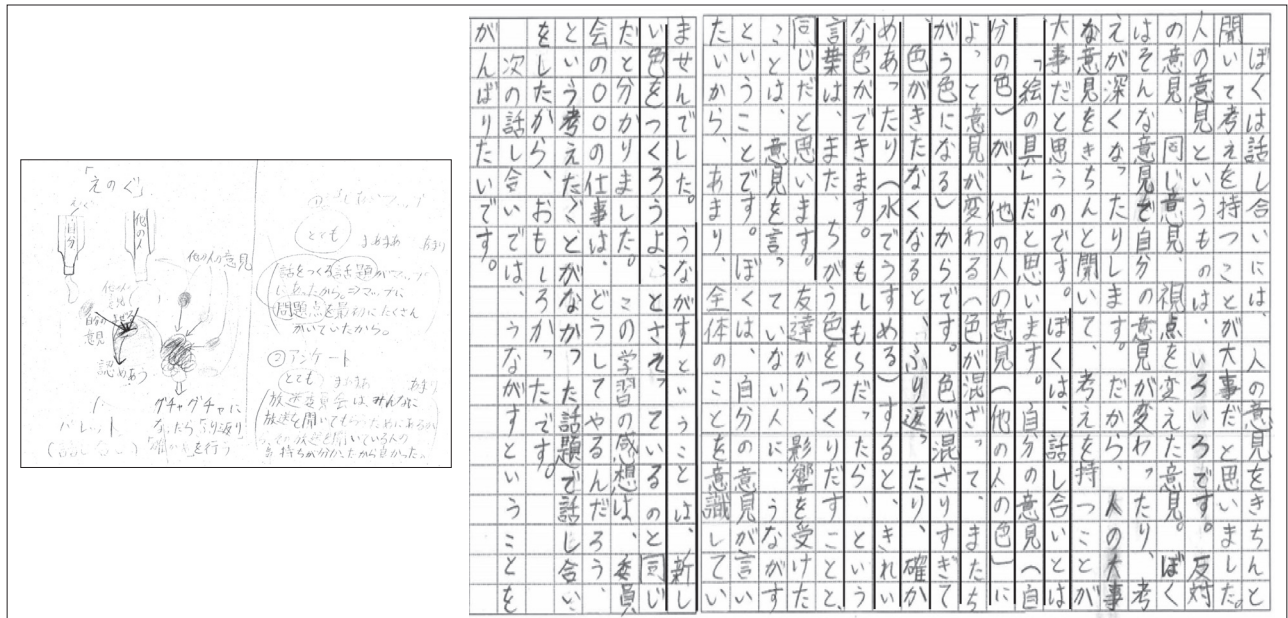 「えのぐ」
自分
他の人
他の人の意見
自分の意見
認めあう
パレット
(話し合い)
グチャグチャに
なったらふり返り
確かめを行う
とても　まあまあ　あまり
話をつくる話題がマップ
になったから。⇒マップに
問題点を最初にたくさん
かいていたから。
②アンケート
とても　まあまあ　あまり
放送委員会は、みんなに
放送を聞いてもらうためにあるから
放送を聞いている人の
気持ちが分かったから良かった。
ぼくは話し合いには、人の意見をきちんと
聞いて考えを持つことが大事だと思いました。
人の意見というものは、いろいろです。反対
の意見、同じ意見、視点を変えた意見。ぼく
はそんな意見で自分の意見が変わったり、考
えが深くなったりします。だから、人の大事
な意見をきちんと聞いて、考えを持つことが
大事だと思うのです。ぼくは、話し合いとは
「絵の具」だと思います。自分の意見(自
分の色)が、他の人の意見(他の人の色)に
よって意見が変わる(色が混ざって、またち
がう色になる)からです。色が混ざりすぎて
色がきたなくなると、ふり返ったり、確か
めあったり(水でうすめる)すると、きれい
な色ができます。もしも～だったら、という
言葉は、また、ちがう色をつくりだすことと、
同じだと思います。友達から、影響を受けた
ことは、意見を言っていない人に、うながす
ということです。ぼくは、自分の意見が言い
たいから、あまり、全体のことを意識してい
ませんでした。うながすということは、新し
い色をつくろうよ」とさそっているのと同じ
だと分かりました。この学習の感想は、委員
会の〇〇の仕事は、どうしてやるんだろう、
という考えたことがなかった話題で話し合い
をしたから、おもしろかったです。
次の話し合いでは、うながすということを
がんばりたいです。